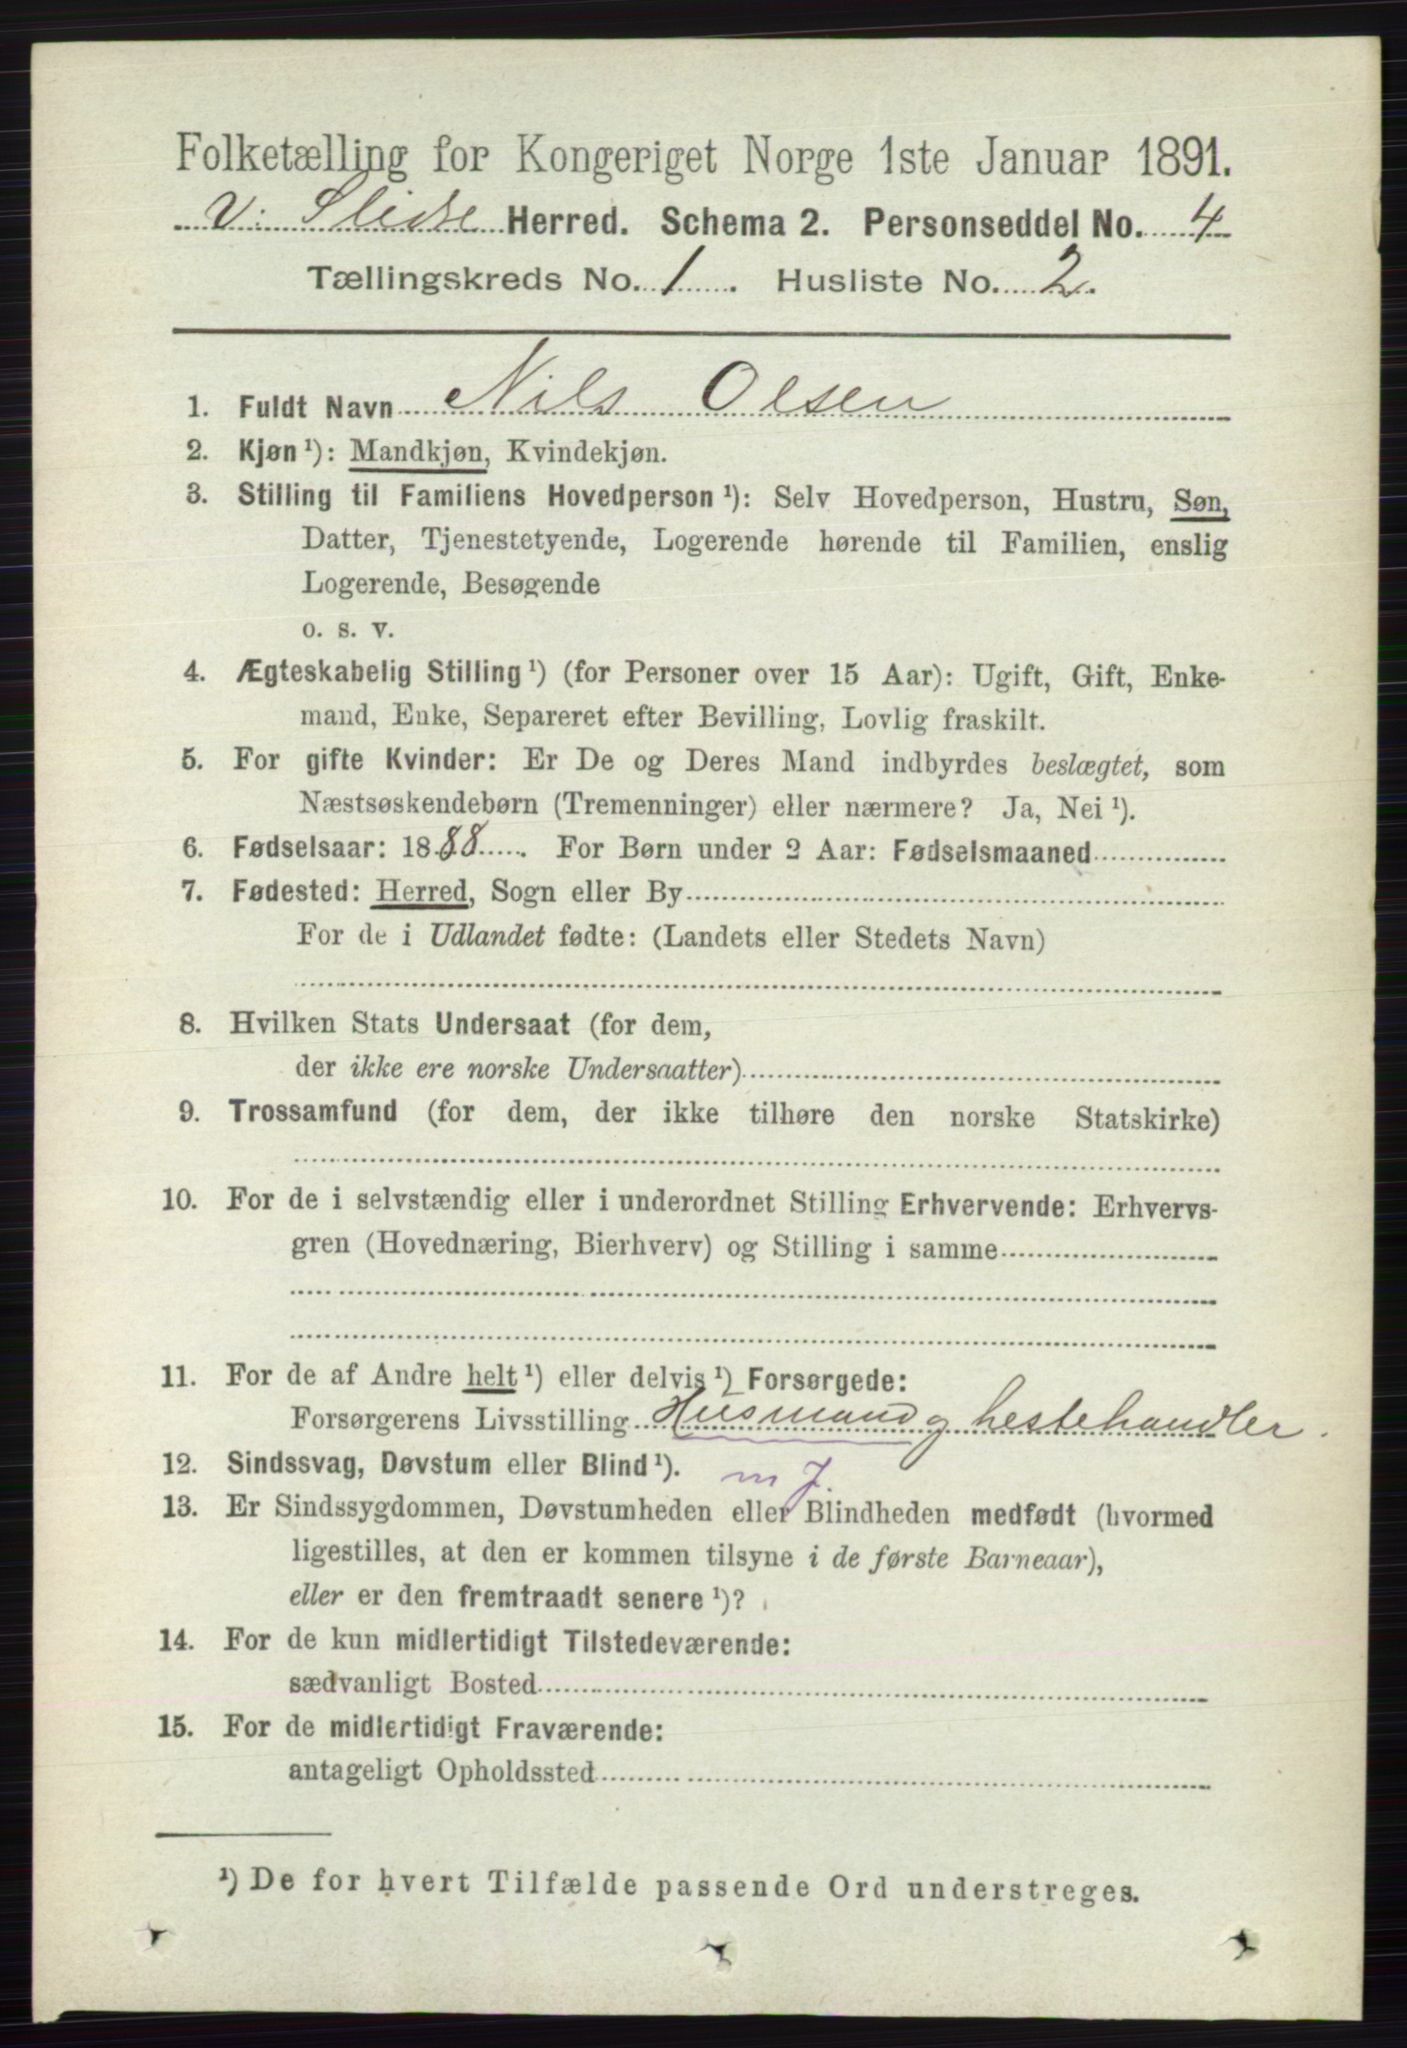 Folketælling for Kongeriget Norge 1ste Januar 1891.
V. Slidre Herred. Schema 2. Personseddel No. 4
Tællingskreds No. 1. Husliste No. 2.
1. Fuldt Navn Nils Olsen
2. Kjøn ¹): Mandkjøn, Kvindekjøn.
3. Stilling til Familiens Hovedperson ¹): Selv Hovedperson, Hustru, Søn,
Datter, Tjenestetyende, Logerende hørende til Familien, enslig
Logerende, Besøgende
o. s. v.
4. Ægteskabelig Stilling ¹) (for Personer over 15 Aar): Ugift, Gift, Enke-
mand, Enke, Separeret efter Bevilling, Lovlig fraskilt.
5. For gifte Kvinder: Er De og Deres Mand indbyrdes beslægtet, som
Næstsøskendebørn (Tremenninger) eller nærmere? Ja, Nei ¹).
6. Fødselsaar: 1888. For Børn under 2 Aar: Fødselsmaaned
7. Fødested: Herred, Sogn eller By
For de i Udlandet fødte: (Landets eller Stedets Navn)
8. Hvilken Stats Undersaat (for dem,
der ikke ere norske Undersaatter)
9. Trossamfund (for dem, der ikke tilhøre den norske Statskirke)
10. For de i selvstændig eller i underordnet Stilling Erhvervende: Erhvervs-
gren (Hovednæring, Bierhverv) og Stilling i samme
11. For de af Andre helt ¹) eller delvis ¹) Forsørgede:
Forsørgerens Livsstilling Husmand og hestehandler.
12. Sindssvag, Døvstum eller Blind ¹). m J.
13. Er Sindssygdommen, Døvstumheden eller Blindheden medfødt (hvormed
ligestilles, at den er kommen tilsyne i de første Barneaar),
eller er den fremtraadt senere ¹)?
14. For de kun midlertidigt Tilstedeværende:
sædvanligt Bosted
15. For de midlertidigt Fraværende:
antageligt Opholdssted
¹) De for hvert Tilfælde passende Ord understreges.